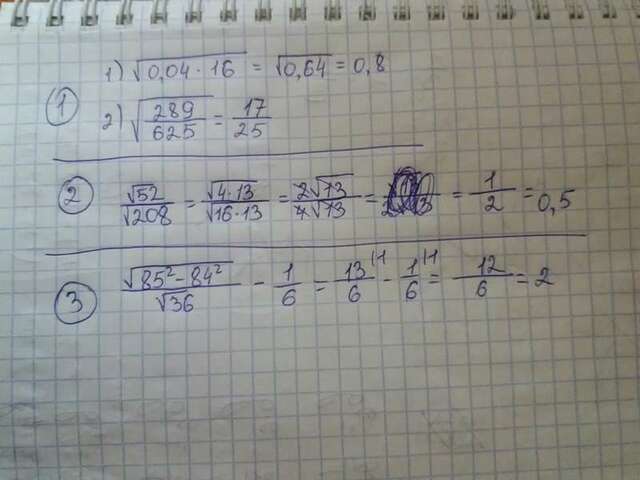 1) √0,04 · 16 = √0,64 = 0,8
① 
2) √289/625 = 17/25
② √52/√208 = √4·13/√16·13 = 2√13/4√13 = = 1/2 = 0,5
③ √85²-84²/√36 - 1/6 = 13/6 |·1 - 1/6 |·1 = 12/6 = 2